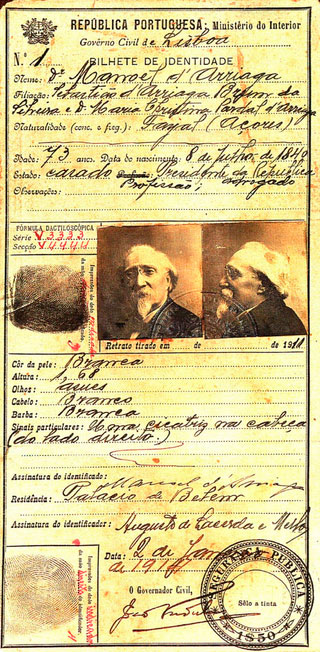 REPÚBLICA PORTUGUESA: Ministério do Interior
Govêrno Civil de Lisboa
N.º 1
BILHETE DE IDENTIDADE
Nome: Dr. Manoel d'Arriaga
Filiação: Sebastião d'Arriaga
Silveira e D. Maria Cristina d'Arriaga
Naturalidade (conc. e freg.): Fayal (Açores)
Idade: 73 anos. Data do nascimento: 8 de Julho de 1840
Estado: casado Presidente da República
Profissão: advogado
Observações:
FÓRMULA DACTILOSCÓPICA
Série V 3333
Secção V 4444
Impressões do dedo
da mão
Retrato tirado em de de 1911
Côr da pele: Branca
Altura: 1,68
Olhos:
Cabelo: Branco
Barba: Branca
Sinais particulares: Uma cicatriz na cabeça
(do lado direito.)
Assinatura do identificado: Manuel d'Arriaga
Residência: Palacio de Belem
Assinatura do identificador: Augusto de Lacerda e Mello
Impressões do dedo
da mão
Data: 2 de
de 19
O Governador Civil,
SEGURANÇA PÚBLICA
Sêlo a tinta
1850